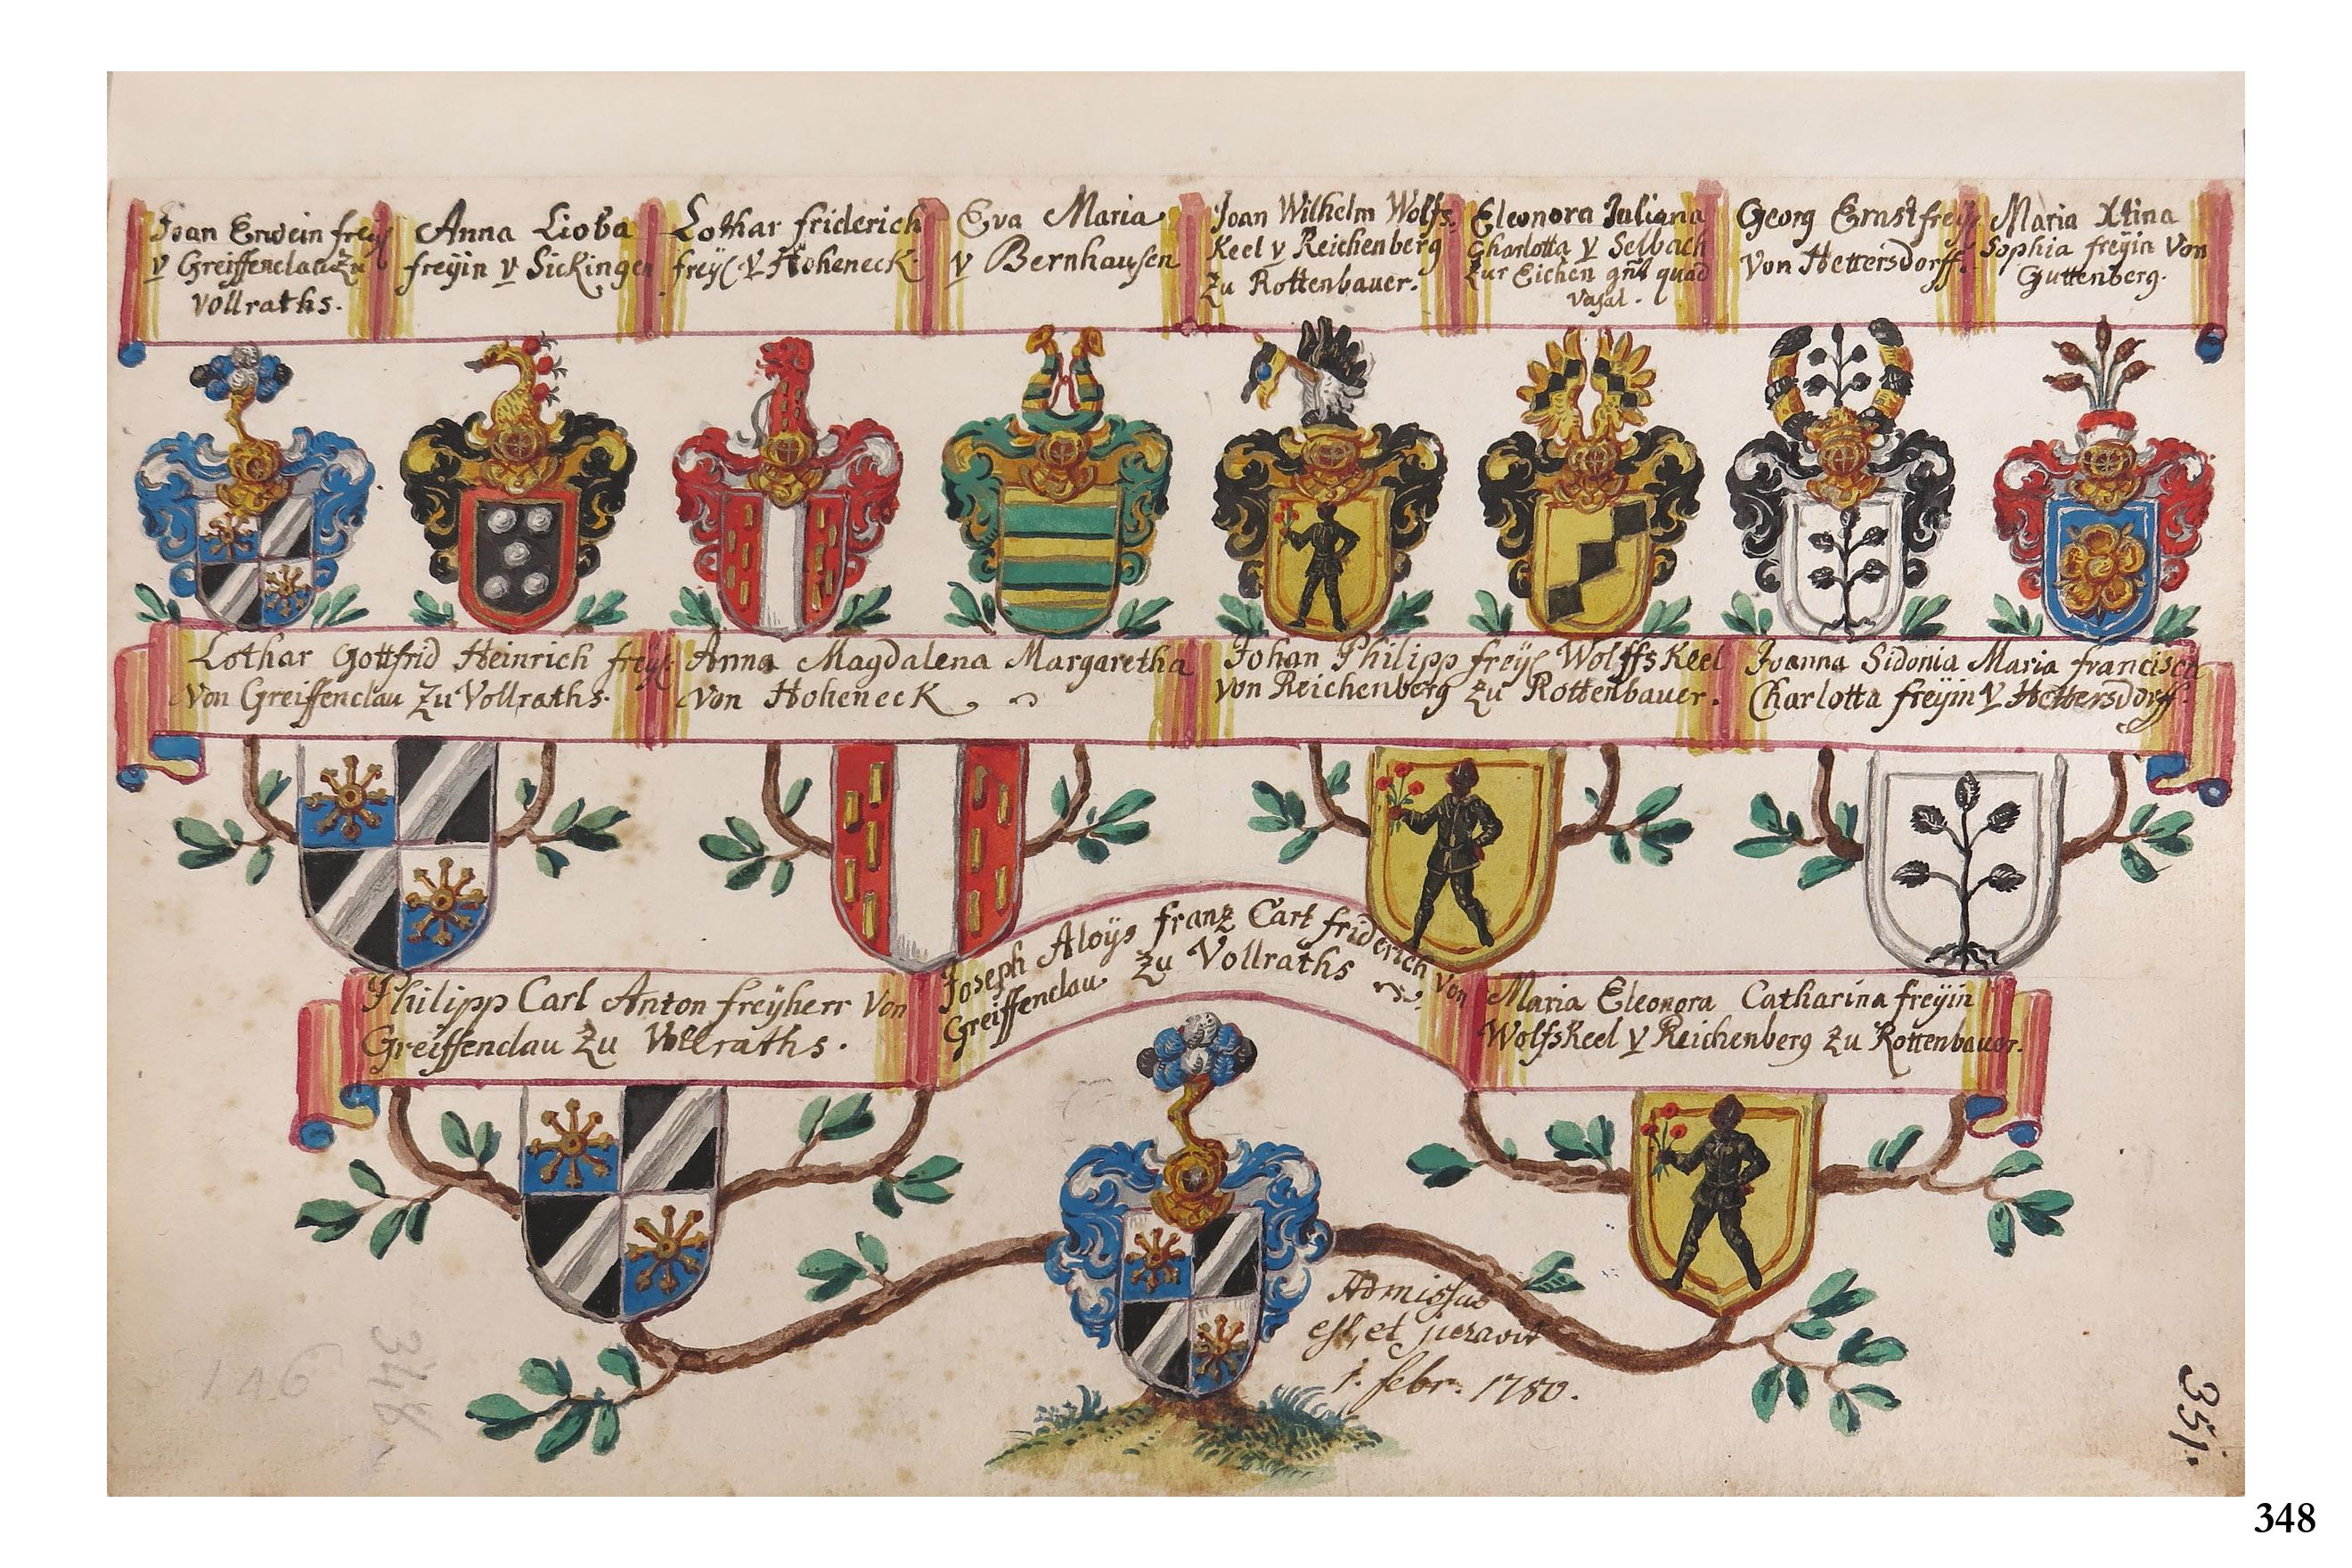 Joan Erwein freÿ
v Greiffenclau Zu
Vollraths.
Anna Lioba
freÿin v Sickingen
Lothar friderich
freÿ v Hoheneck.
Eva Maria
v Bernhausen
Joan Wilhelm Wolfs
Keel v Reichenberg
Zu Rottenbauer.
Eleonora Juliana
Charlotta v Selbach
Zur Eichen gñt quad
Vasal.
Georg Ernst freÿ
Von Hettersdorff.
Maria Xtina
Sophia freÿin Von
Guttenberg.
Lothar Gottfrid Heinrich freÿ
Von Greiffenclau Zu Vollraths.
Anna Magdalena Margaretha
von Hoheneck
Johan Philipp freÿ Wolffskeel
von Reichenberg Zu Rottenbauer.
Joanna Sidonia Maria francisca
Charlotta freÿin v Hettersdorff.
Philipp Carl Anton freÿherr Von
Greiffenclau Zu Vollraths.
Joseph Aloÿs franz Carl friderich von
Greiffenclau Zu Vollraths
Maria Eleonora Catharina freÿin
Wolfskeel v Reichenberg Zu Rottenbauer.
Admissus
est, et juravit
1. febr. 1780.
146
348
351.
348